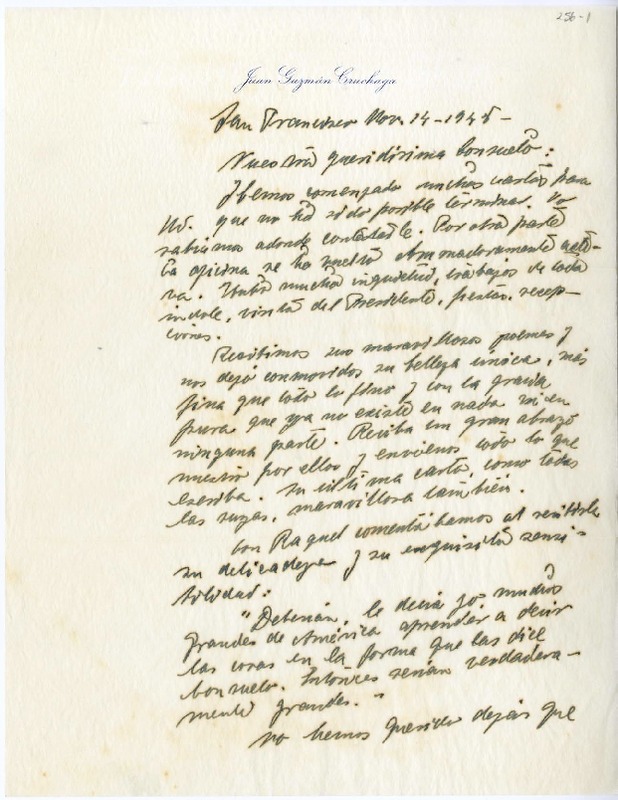 256-1
Juan Guzmán Cruchaga
San Francisco Nov. 14-1945-
Nuestra queridísima Consuelo:
Hemos comenzado muchas cartas para
Ud. que no ha sido posible terminar. No
sabíamos adonde contestarle. Por otra parte
la oficina se ha vuelto abrumadoramente acti-
va. Hubo mucha inquietud, trabajos de toda
índole, visita del Presidente, fiestas, recep-
ciones.
Recibimos sus maravillosos poemas y
nos dejó conmovidos su belleza única, más
fina que todo lo fino y con la gracia
pura que ya no existe en nada ni en
ninguna parte. Reciba un gran abrazo
nuestro por ellos y envíenos todo lo que
escriba. Su última carta, como todas
las suyas, maravillosa también.
Con Raquel comentábamos al recibirla
su delicadeza y su exquisita sensi-
bilidad:
"Deberían, le decía yo, muchos
grandes de América aprender a decir
las cosas en la forma que las dice
Consuelo. Entonces serían verdadera-
mente grandes."
No hemos querido dejar que